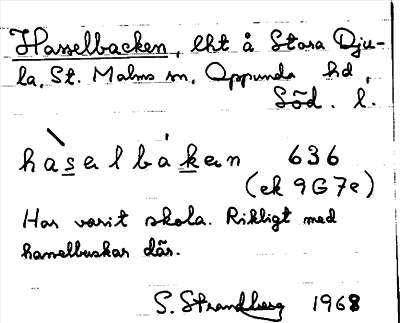 Hasselbacken, lht å Stora Dju-
la, St. Malms sn, Oppunda hd,
Söd. l.
hasalbakan 636
(ek 9G7e)
Har varit skola. Rikligt med
hasselbuskar där.
S. Strandberg 1968